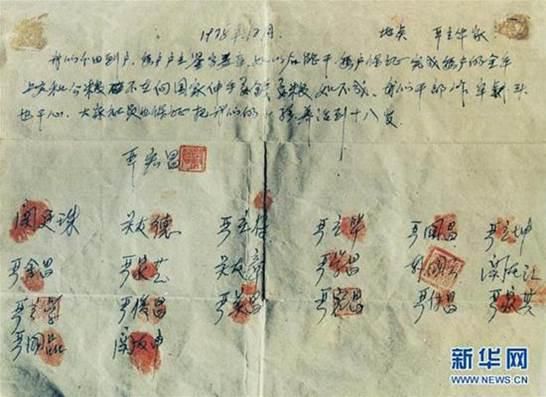 1978年12月 地点 严立华家
我们分田到户，每户户主签字盖章，如以后能干，每户保证完成每户的全年
上交和公粮，不在向国家伸手要钱要粮，如不成，我们干部作牢刹头
也干心，大家社员也保证把我们的小孩养活到十八岁。
严宏昌
关廷珠 关友德 严立符 严立华 严国昌 严立坤
严金昌 严家芝 关友章 严学昌 韩国云 关友江
严立学 严俊昌 严美昌 严宏昌 严付昌 严家其
严国品 关友坤
新华网
WWW.NEWS.CN